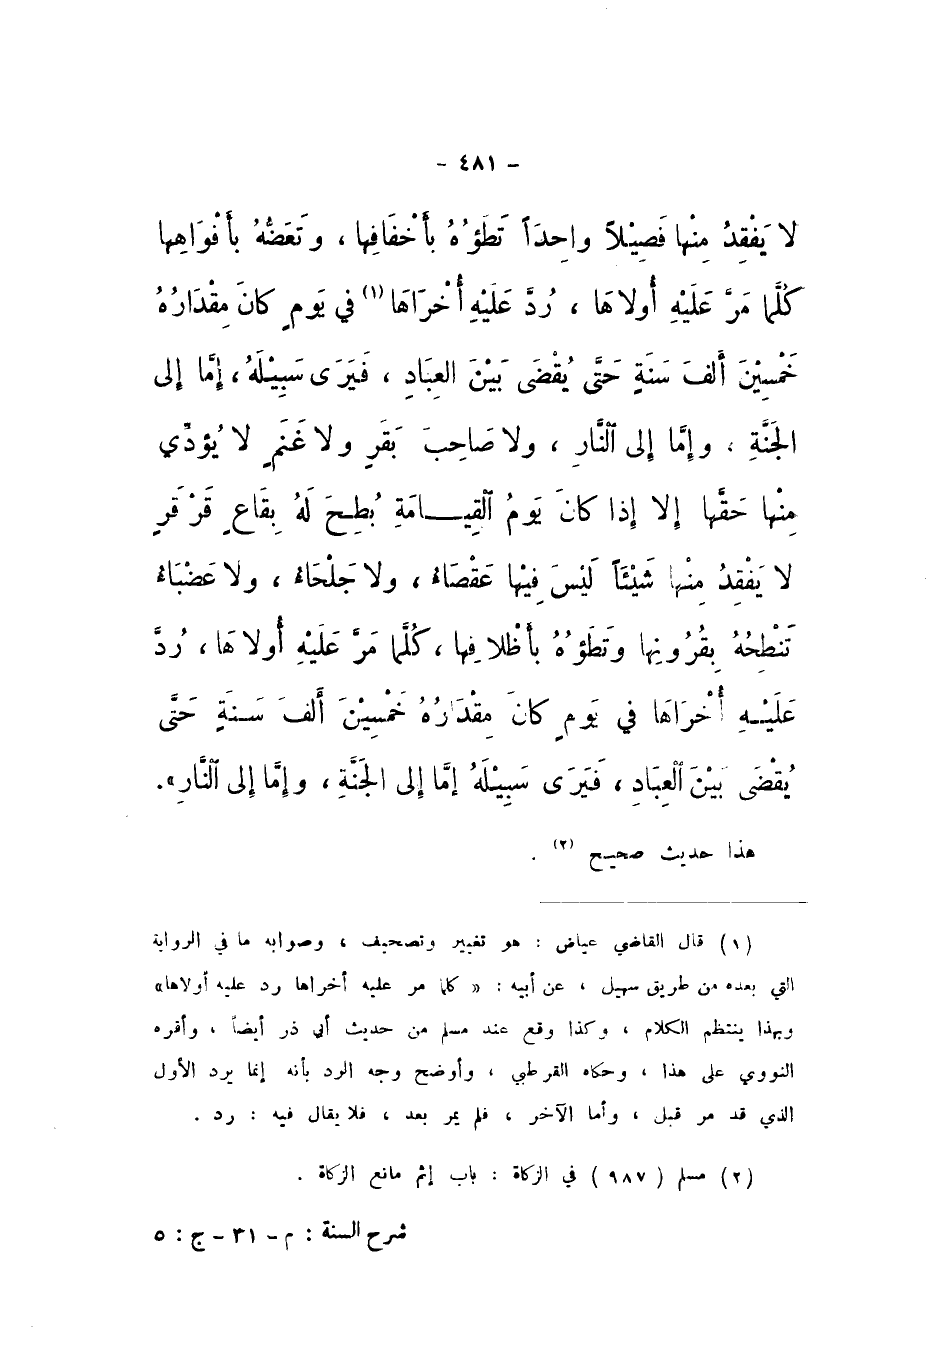 - ٤٨١ -
لا يَفْقِدُ مِنْها فَصِيْلاً واحِدَاً تَطَؤُهُ بأَخْفَافِها ، وتَعَضُّهُ بأَفْوَاهِها
كُلَّما مَرَّ عَلَيْهِ أُولاهَا ، رُدَّ عَلَيْهِ أُخْرَاهَا (١) في يَومٍ كانَ مِقْدَارُهُ
خَمْسِيْنَ أَلفَ سَنَةٍ حَتَّى يُقْضَى بَيْنَ العِبَادِ ، فَيَرَى سَبِيْلَهُ ، إمَّا إلى
الجَنَّةِ ، وإمَّا إلى النَّارِ ، ولا صَاحِبَ بَقَرٍ ولا غَنَمٍ لا يُؤدِّي
مِنْها حَقَّها إلا إذا كانَ يَومُ القِيـــامَةِ بُطِحَ لَهُ بِقَاعٍ قَرْقَرٍ
لا يَفْقِدُ مِنْها شَيْئَاً لَيْسَ فِيْها عَقْصَاءُ ، ولا جَلْحَاءُ ، ولا عَضْبَاءُ
تَنْطِحُهُ بِقُرُونِها وتَطَؤُهُ بأَظْلافِها ، كُلَّما مَرَّ عَلَيْهِ أُولاهَا ، رُدَّ
عَلَيْـهِ أُخْرَاهَا في يَومٍ كانَ مِقْدَارُهُ خَمْسِيْنَ أَلفَ سَـنَةٍ حَتَّى
يُقْضَى بَيْنَ العِبَادِ ، فَيَرَى سَبِيْلَهُ إمَّا إلى الجَنَّةِ ، وإمَّا إلى النَّارِ » .
هذا حديث صحيح (٢) .
(١) قال القاضي عياض : هو تغيير وتصحيف ، وصوابه ما في الرواية
التي بعده من طريق سهيل ، عن أبيه : « كلما مر عليه أخراها رد عليه أولاها »
وبهذا ينتظم الكلام ، وكذا وقع عند مسلم من حديث أبي ذر أيضاً ، وأقره
النووي على هذا ، وحكاه القرطبي ، وأوضح وجه الرد بأنه إنما يرد الأول
الذي قد مر قبل ، وأما الآخر ، فلم يمر بعد ، فلا يقال فيه : رد .
(٢) مسلم ( ٩٨٧ ) في الزكاة : باب إثم مانع الزكاة .
شرح السنة : م - ٣١ - ج : ٥